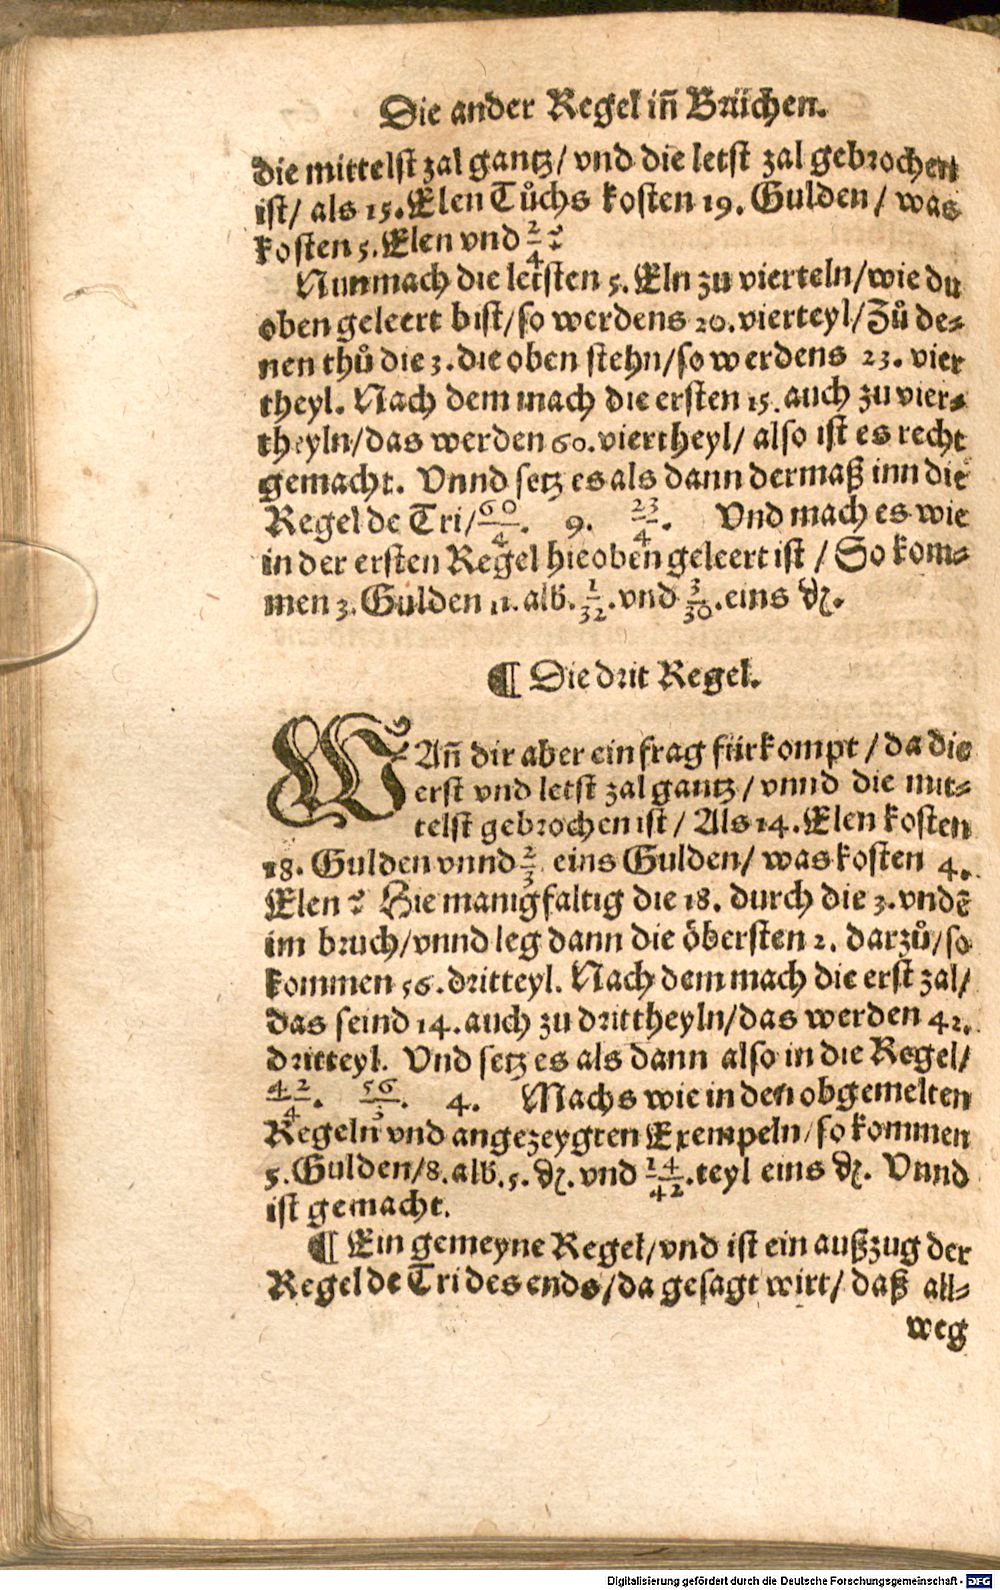 Die ander Regel iñ Brüchen.
die mittelst zal gantz / vnd die letst zal gebrochen
ist / als 15. Elen Tůchs kosten 19. Gulden / was
kosten 5. Elen vnd 2/4 ?
Nun mach die letsten 5. Eln zu vierteln / wie du
oben geleert bist / so werdens 20. vierteyl / Zů de⸗
nen thů die 3. die oben stehn / so werdens 23. vier
theyl. Nach dem mach die ersten 15. auch zu vier⸗
theyln / das werden 60. viertheyl / also ist es recht
gemacht. Vnnd setz es als dann dermaß inn die
Regel de Tri / 60/4. 9. 23/4. Vnd mach es wie
in der ersten Regel hieoben geleert ist / So kom⸗
men 3. Gulden 11. alb. 1/32. vnd 3/30. eins ₰.
¶ Die drit Regel.
WAñ dir aber ein frag fürkompt / da die
erst vnd letst zal gantz / vnnd die mit⸗
telst gebrochen ist / Als 14. Elen kosten
18. Gulden vnnd 2/3 eins Gulden / was kosten 4.
Elen ? Hie manigfaltig die 18. durch die 3. vndẽ
im bruch / vnnd leg dann die öbersten 2. darzů / so
kommen 56. dritteyl. Nach dem mach die erst zal /
das seind 14. auch zu drittheyln / das werden 42.
dritteyl. Vnd setz es als dann also in die Regel /
42/4. 56/3. 4. Machs wie in den obgemelten
Regeln vnd angezeygten Exempeln / so kommen
5. Gulden / 8. alb. 5. ₰. vnd 14/42. teyl eins ₰. Vnnd
ist gemacht.
¶ Ein gemeyne Regel / vnd ist ein außzug der
Regel de Tri des ends / da gesagt wirt / daß all⸗
weg
Digitalisierung gefördert durch die Deutsche Forschungsgemeinschaft - DFG